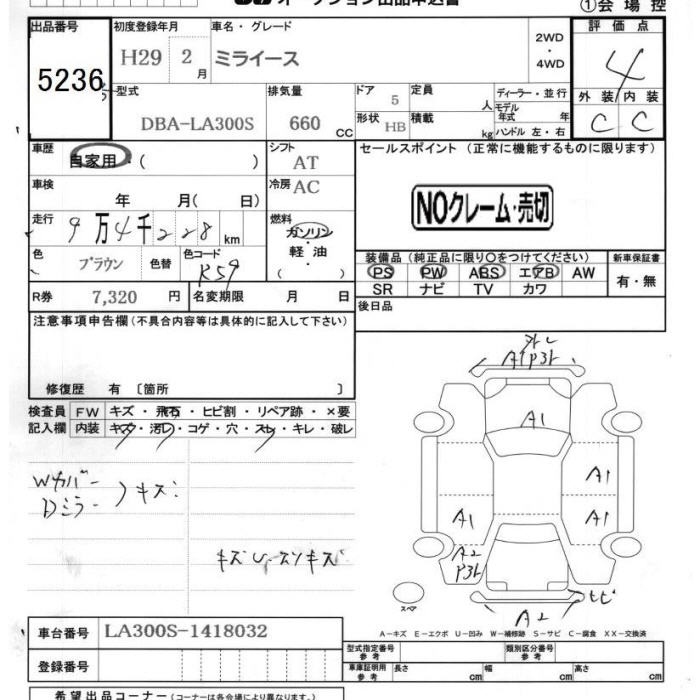 オークション出品申込書
①会場控
出品番号
5236
初度登録年月
H29 2月
車名・グレード
ミライース
2WD
・
4WD
評価点
4
外装 内装
C C
型式
DBA-LA300S
排気量
660 CC
ドア 5
形状 HB
定員 人
積載 kg
ディーラー・並行
モデル年式 年
ハンドル 左・右
車歴
自家用・( )
シフト AT
冷房 AC
車検
年 月( 日)
走行
9万4千228km
燃料
ガソリン
・
軽油
( )
色
ブラウン
色替
色コード
R59
R券 7,320 円
名変期限 月 日
セールスポイント (正常に機能するものに限ります)
NOクレーム・売切
装備品 (純正品に限り〇をつけてください)
新車保証書
PS PW ABS エアB AW
SR ナビ TV カワ
有・無
後日品
注意事項申告欄 (不具合内容等は具体的に記入して下さい)
修復歴 有 〔箇所 〕
検査員
記入欄
FW キズ・飛石・ヒビ割・リペア跡・×要
内装 キズ・汚レ・コゲ・穴・スレ・キレ・破レ
Wカバー
Dミラー
キズ
外レ
A1P3ト
A1
A1
A1
A1
A2
P3ト
ヒビ
A2
スペア
A-キズ E-エクボ U-凹み W-補修跡 S-サビ C-腐食 XX-交換済
車台番号 LA300S-1418032
登録番号
型式指定番号
参考
類別区分番号
参考
車庫証明用
参考
長さ cm 幅 cm 高さ cm
希望出品コーナー (コーナーは各会場により異なります)